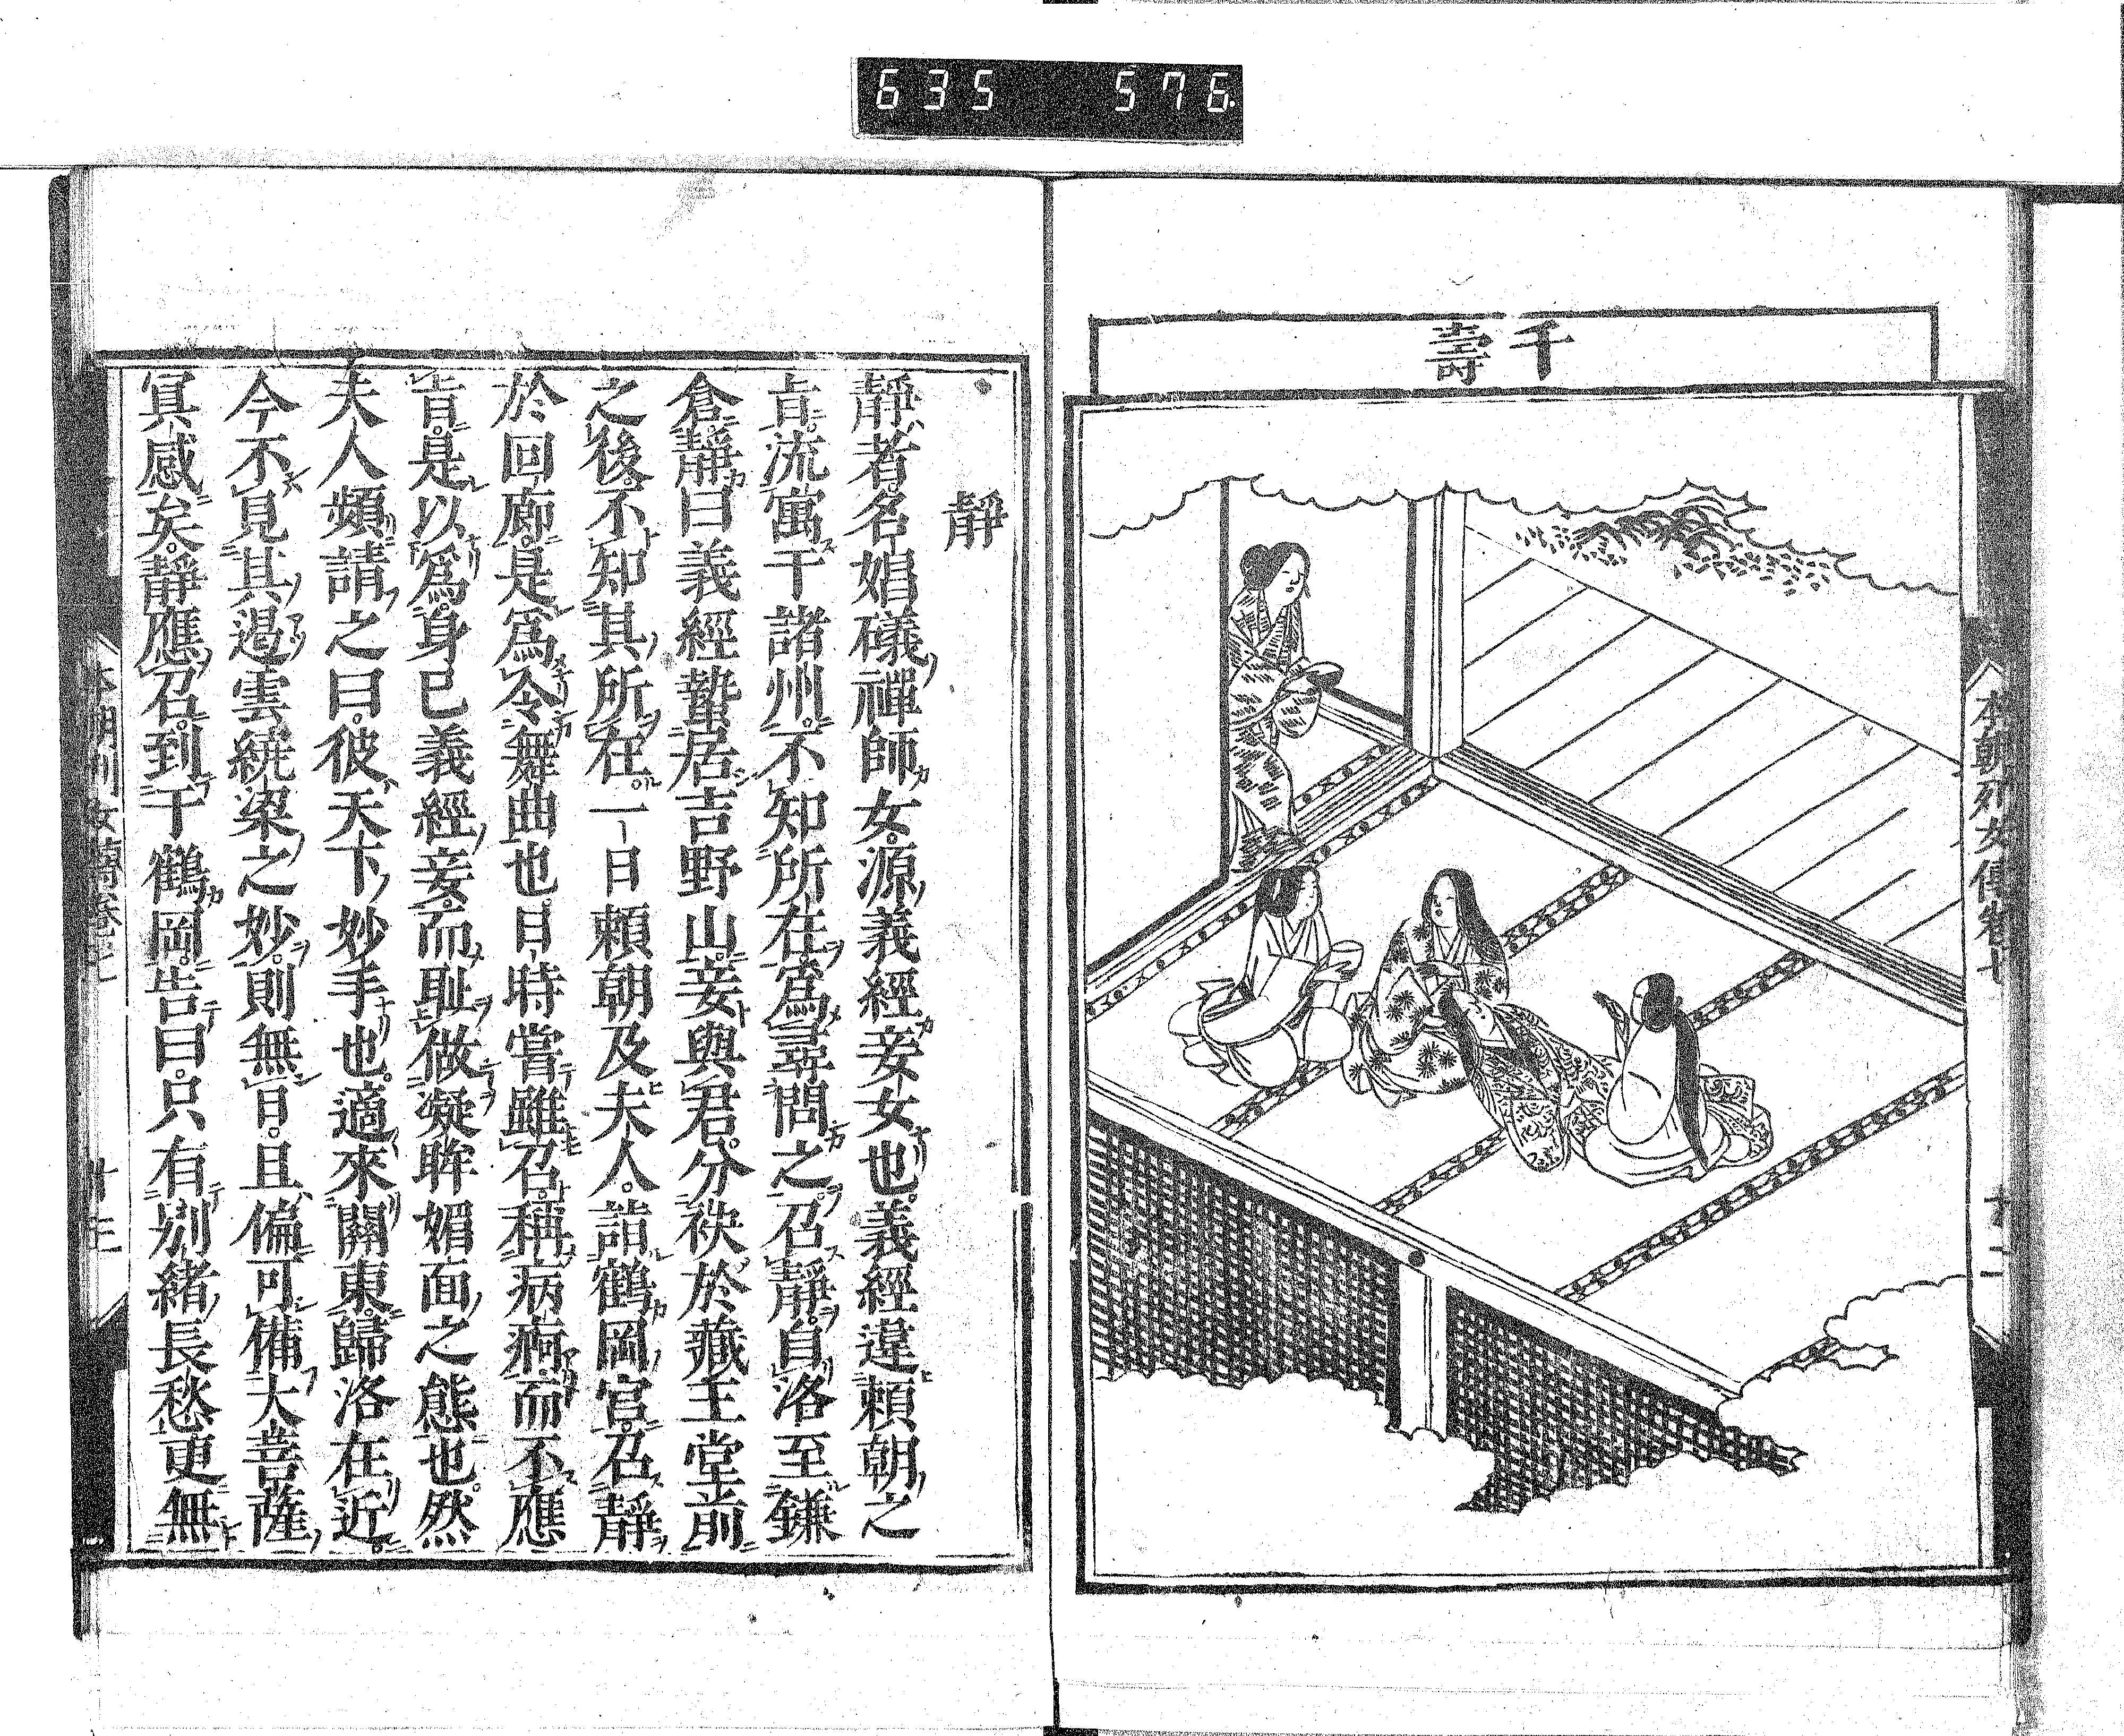 635 576.
千壽
本朝列女傳卷七
廿二
靜
靜者名娼礒禪師女源義經妾女也義經違頼朝之
旨流寓于諸州不知所在爲尋問之召靜自洛至鎌
倉靜曰義經蟄居吉野山妾與君分袂於藏王堂前
之後不知其所在一日頼朝及夫人詣鶴岡宮召靜
於回廊是爲令舞曲也日時嘗雖召稱病痾而不應
旨是以爲身已義經妾而耻做凝眸媚面之態也然
夫人頻請之曰彼天下妙手也適來關東歸洛在近
今不見其遏雲繞梁之妙則無日且偏可備大菩薩
冥感矣靜應召到于鶴岡告曰只有別緒長愁更無
本朝列女傳卷七
廿三